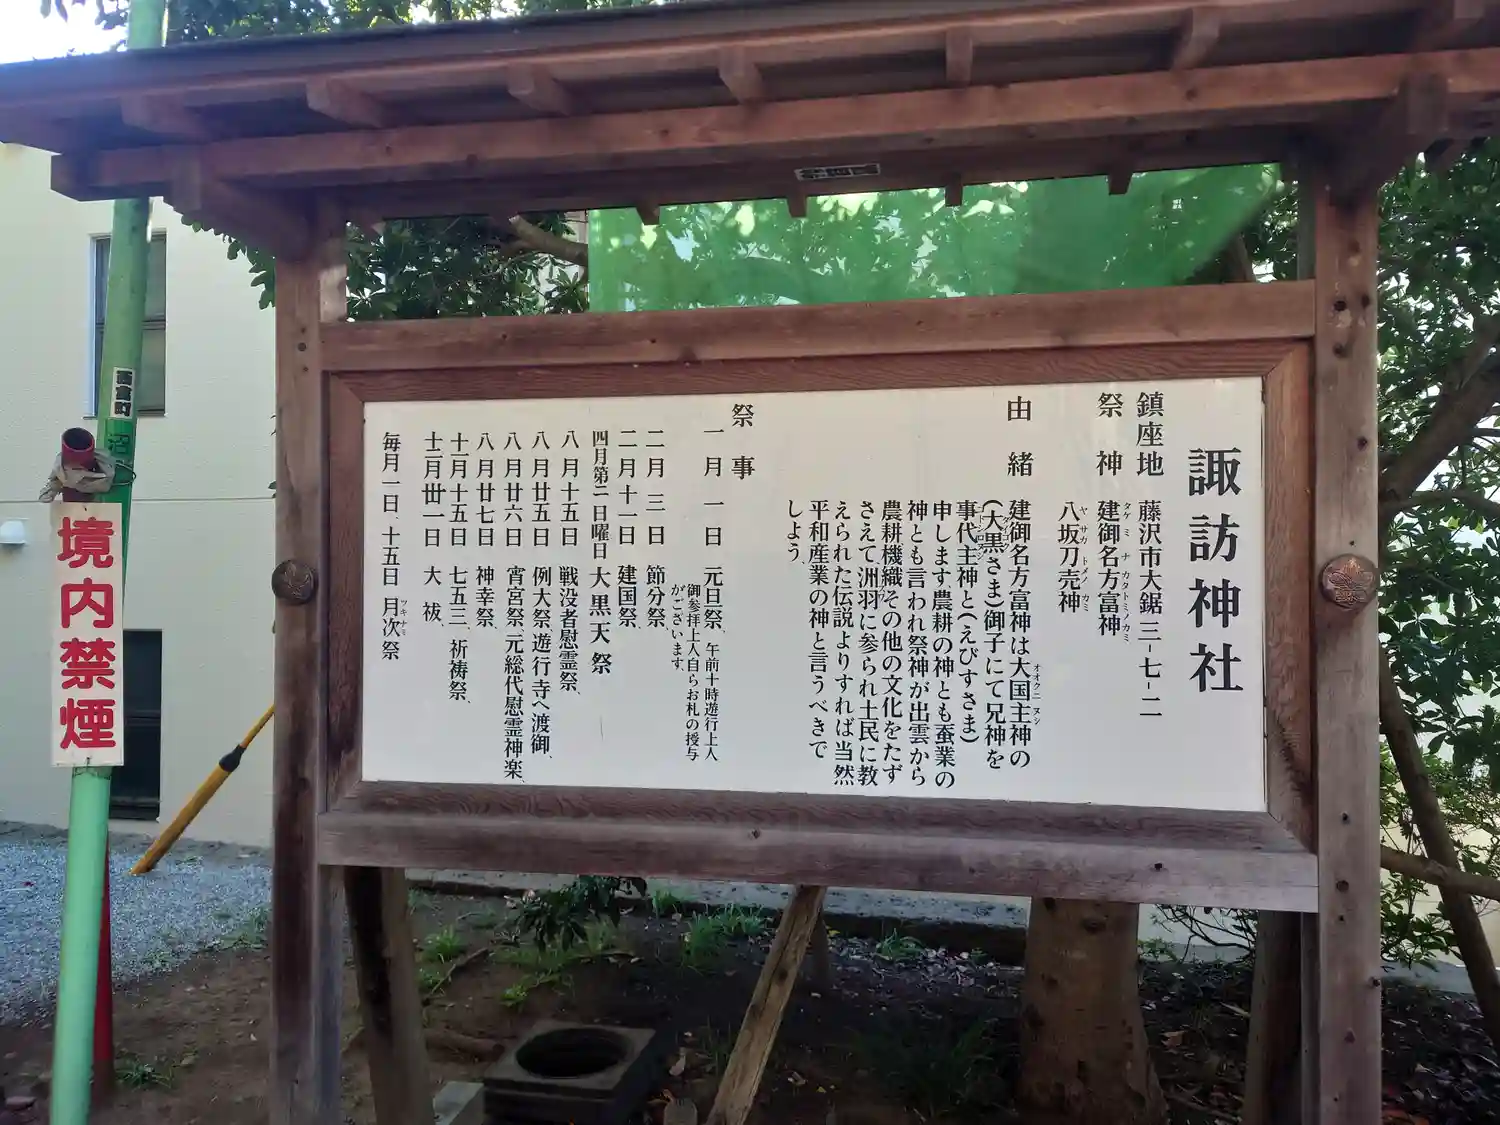 諏訪神社
鎮座地　藤沢市大鋸三-七-二
祭神　建御名方富神
タケミナカタトミノカミ
八坂刀売神
ヤサカトメノカミ
由緒　建御名方富神は大国主神の
オオクニヌシ
(大黒さま)御子にて兄神を
事代主神と(えびすさま)
申します、農耕の神とも蚕業の
神とも言われ祭神が出雲から
農耕機織その他の文化をたず
さえて洲羽に参られ土民に教
えられた伝説よりすれば当然
平和産業の神と言うべきで
しよう、
祭事
一月一日　元旦祭、午前十時遊行上人
御参拝上人自らお札の授与
がございます、
二月三日　節分祭、
二月十一日　建国祭、
四月第二日曜日　大黒天祭
八月十五日　戦没者慰霊祭、
八月廿五日　例大祭、遊行寺へ渡御、
八月廿六日　宵宮祭、元総代慰霊神楽、
八月廿七日　神幸祭、
十一月十五日　七五三、祈祷祭、
十二月卅一日　大祓、
毎月一日、十五日　月次祭
ツキナミ
境内禁煙
西富町